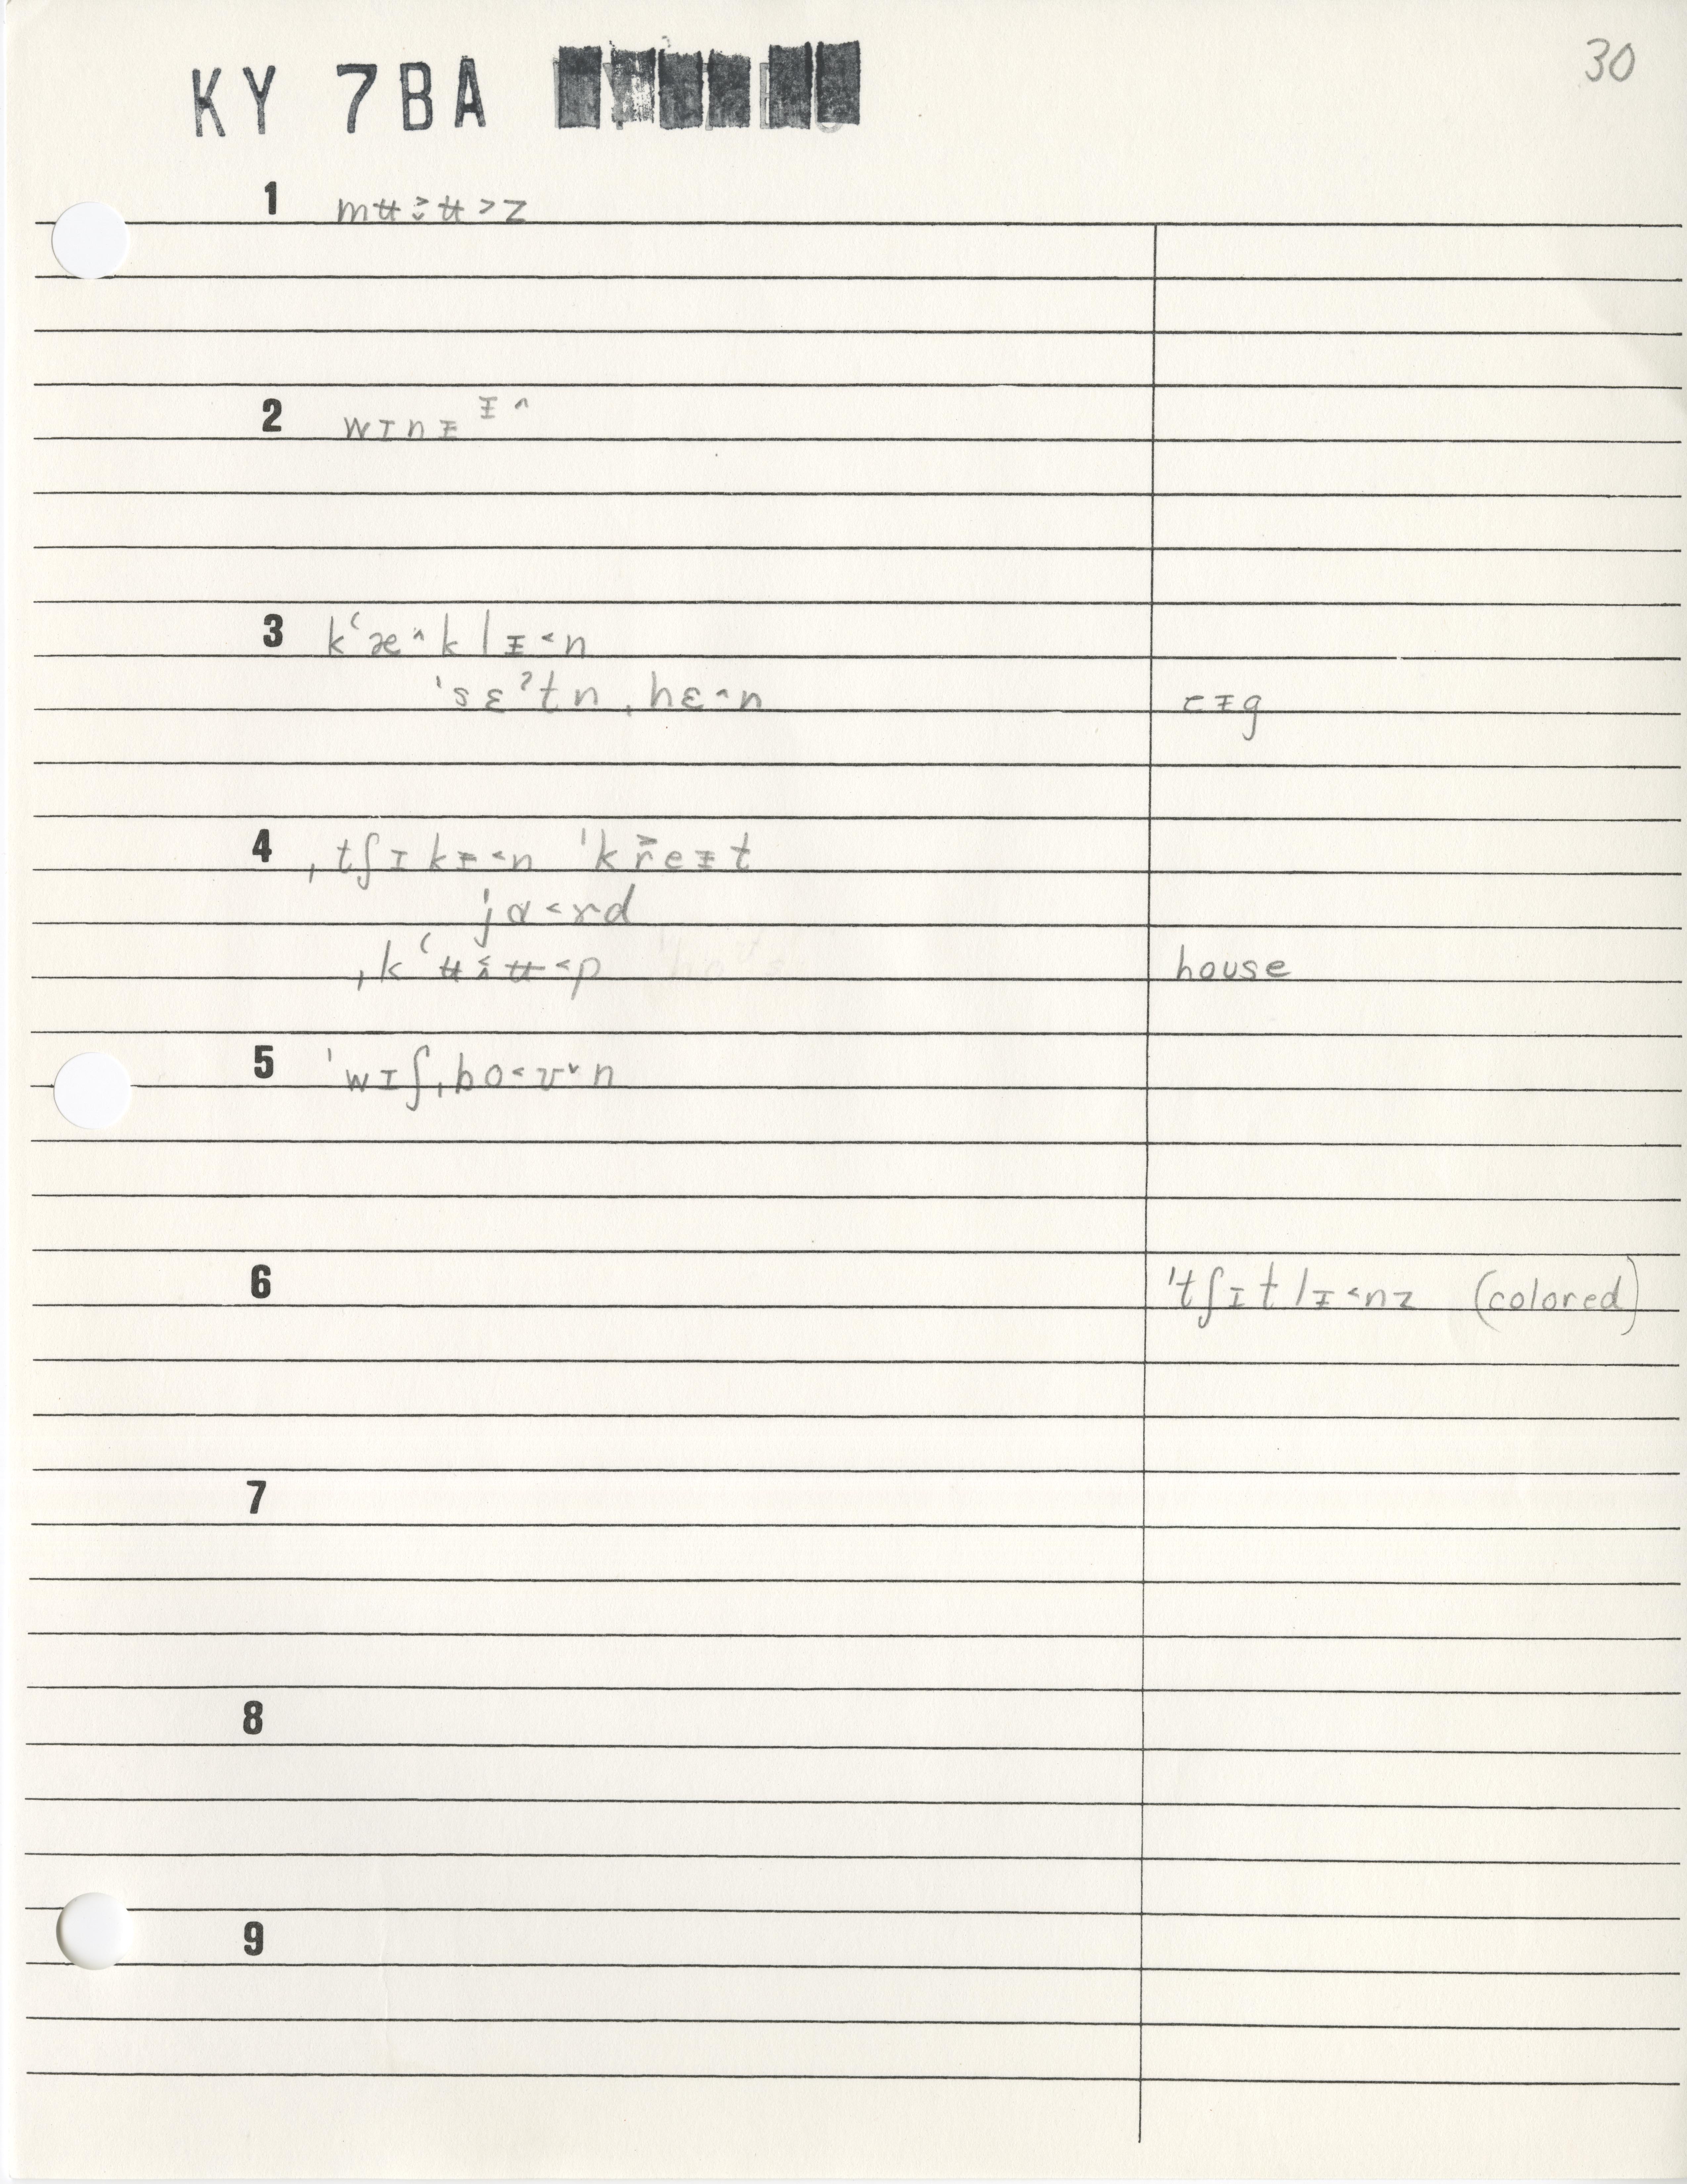 KY 7BA
30
1 mʉ˃̬ʉ˃z
2 wɪnᵻ ᵻ^
3 kʻæ^klᵻ˂n
ˈsɛˀtn ˌhɛ^n eᵻg
4 ˌtʃɪkᵻ˂n ˈkr̆eᵻt
jɑ˂rd
ˌkʻʉ˂̭ʉ˂p house
5 ˈwɪʃˌbo˂ʊˇn
6 ˈtʃɪtlᵻ˂nz (colored)
7
8
9